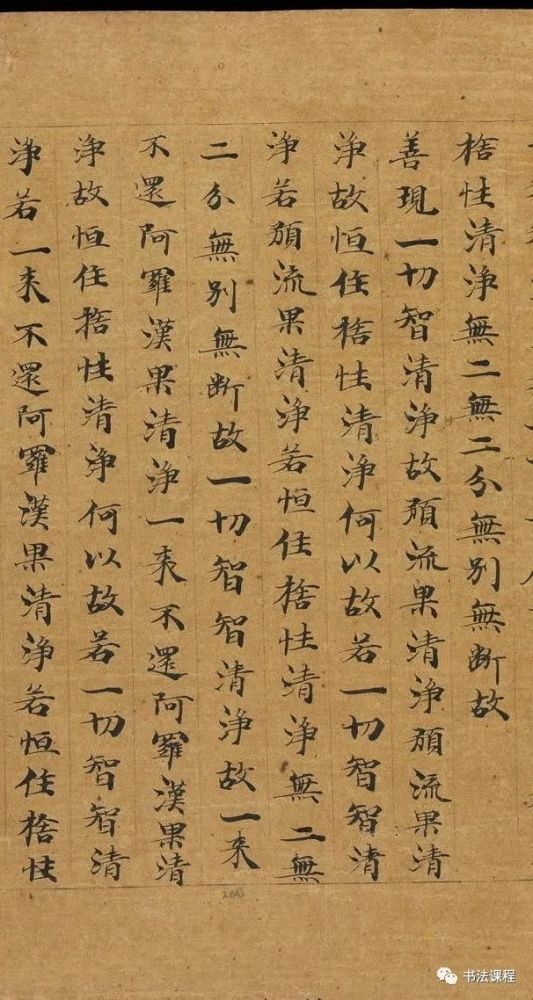 捨性清淨無二無二分無別無断故
善現一切智清淨故預流果清淨預流果清
淨故恒住捨性清淨何以故若一切智智清
淨若預流果清淨若恒住捨性清淨無二無
二分無別無断故一切智智清淨故一来
不還阿羅漢果清淨一来不還阿羅漢果清
淨故恒住捨性清淨何以故若一切智智清
淨若一来不還阿羅漢果清淨若恒住捨性
书法课程